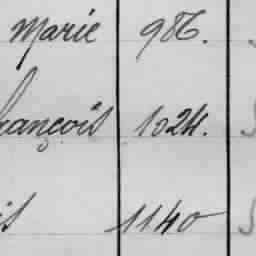 Marie 986.
rançois 1024.
is 1140